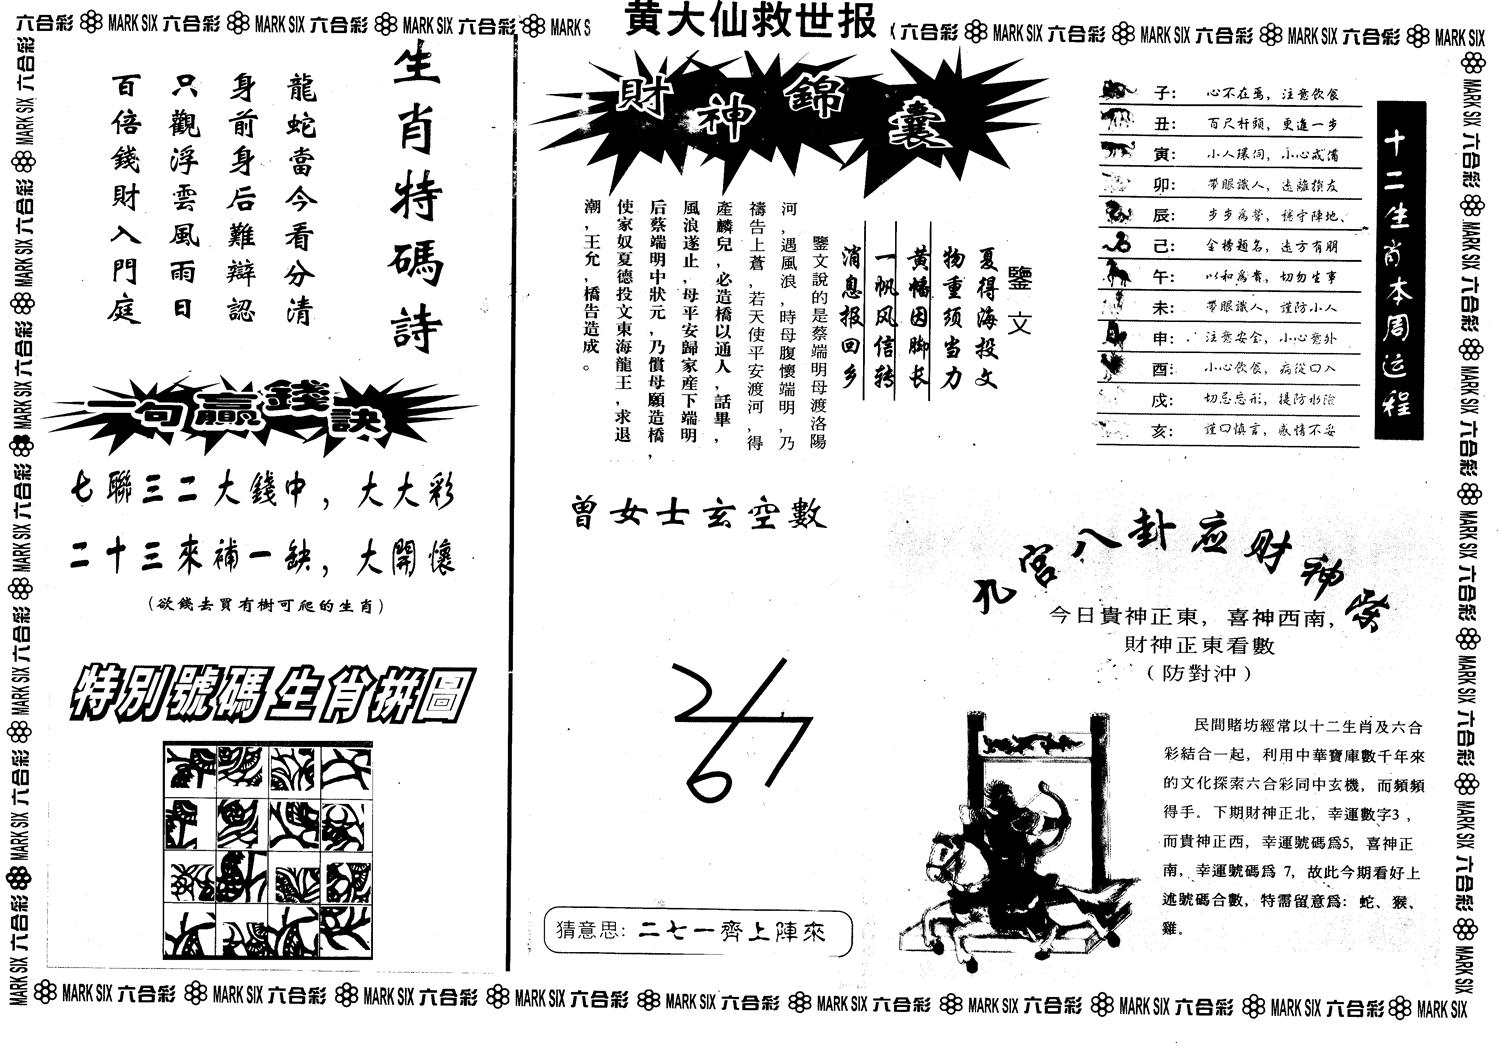 黄大仙救世报
六合彩 MARK SIX 六合彩 MARK SIX 六合彩 MARK SIX 六合彩 MARK S
六合彩 MARK SIX 六合彩 MARK SIX 六合彩 MARK SIX 六合彩 MARK SIX
生肖特碼詩
龍蛇當今看分清
身前身后難辯認
只觀浮雲風雨日
百倍錢財入門庭
一句贏錢訣
七聯三二大錢中，大大彩
二十三來補一缺，大開懷
（欲錢去買有樹可爬的生肖）
特別號碼生肖拼圖
財神錦囊
鑒文
夏得海投文
物重须当力
黄幡因脚长
一帆风信转
消息报回乡
鑒文說的是蔡端明母渡洛陽
河，遇風浪，時母腹懷端明，乃
禱告上蒼，若天使平安渡河，得
產麟兒，必造橋以通人，話畢，
風浪遂止，母平安歸家産下端明
后蔡端明中狀元，乃償母願造橋，
使家奴夏德投文東海龍王，求退
潮，王允，橋告造成。
曾女士玄空數
2
6
7
猜意思：二七一齊上陣來
十二生肖本周运程
子： 心不在焉，注意飲食
丑： 百尺杆頭，更進一步
寅： 小人環伺，小心戒備
卯： 帶眼識人，遠離損友
辰： 步步為營，穩守陣地、
己： 金榜題名，遠方有朋
午： 以和為貴，切勿生事
未： 帶眼識人，謹防小人
申： 注意安全，小心意外
酉： 小心飲食，病從口入
戌： 切忌忘形，提防水險
亥： 謹口慎言，感情不妥
九宮八卦应财神柴
今日貴神正東，喜神西南，
財神正東看數
（防對沖）
民間賭坊經常以十二生肖及六合
彩結合一起，利用中華寶庫數千年來
的文化探索六合彩同中玄機，而頻頻
得手。下期財神正北，幸運數字3，
而貴神正西，幸運號碼爲5，喜神正
南，幸運號碼爲 7，故此今期看好上
述號碼合數，特需留意爲：蛇、猴、
雞。
MARK SIX 六合彩 MARK SIX 六合彩 MARK SIX 六合彩 MARK SIX 六合彩 MARK SIX 六合彩 MARK SIX 六合彩 MARK SIX 六合彩 MARK SIX 六合彩 MARK SIX 六合彩 MARK SIX